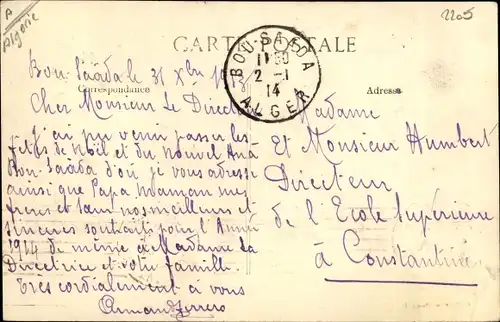 A
Algérie
2205
CARTE POSTALE
BOU-SAADA
11 30
2 -1
14
ALGER
Correspondance
Adresse
Bou-Saâda le 31 Xbre 1913
Cher Monsieur Le Directeur
J'ai pu venir passer les
fêtes de Noël et du Nouvel An à
Bou-Saâda d'où je vous adresse
ainsi que Papa Maman mes
frères et sœur nos meilleurs et
sincères souhaits pour l'Année
1914 de même à Madame La
Directrice et votre famille.
Très cordialement à vous
Armand Ferrero
Madame
Et Monsieur Humbert
Directeur
de l'Ecole Supérieure
à Constantine